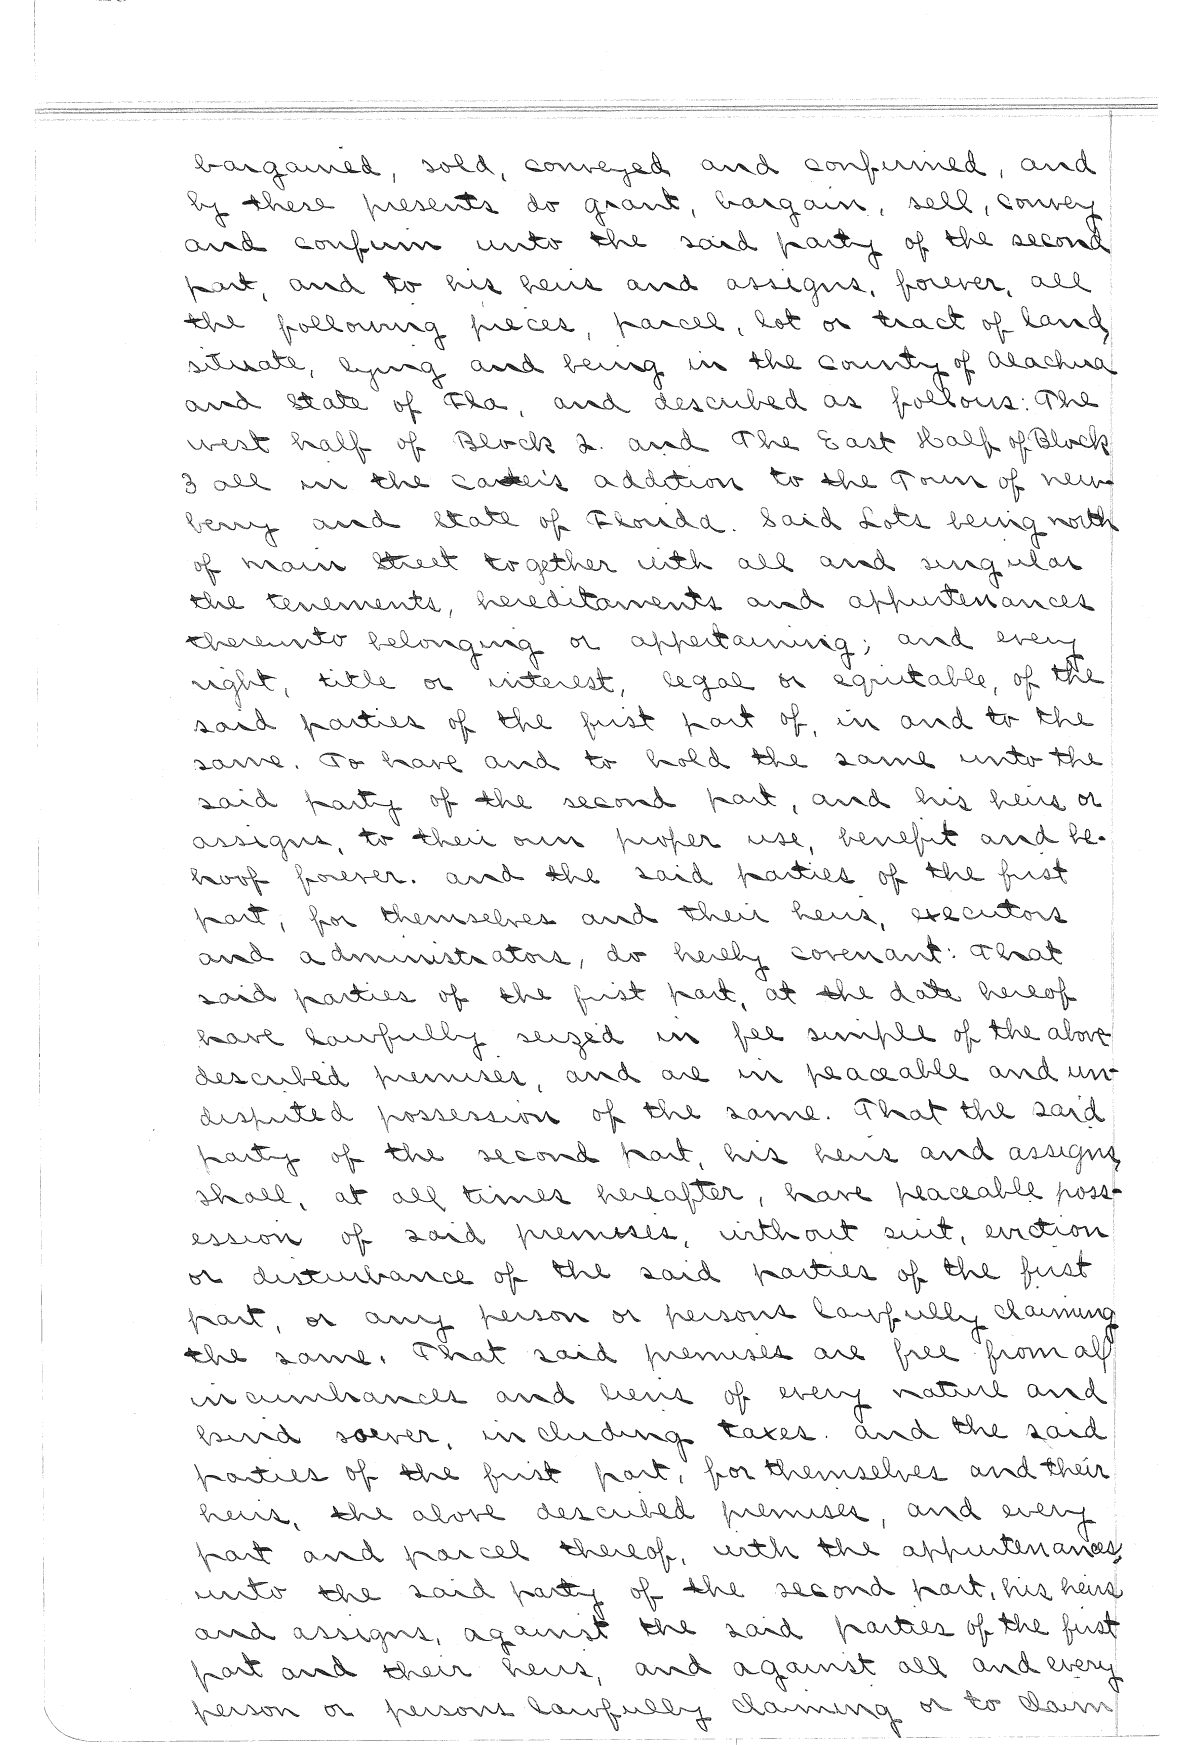 bargained, sold, conveyed and confirmed, and
by these presents do grant, bargain, sell, convey
and confirm unto the said party of the second
part, and to his heirs and assigns, forever, all
the following pieces, parcel, lot or tract of land,
situate, lying and being in the county of Alachua
and State of Fla, and described as follows: The
west half of Block 2. and The East Half of Block
3 all in the Carter's addition to the Town of new-
berry and State of Florida. Said Lots being north
of main Street together with all and singular
the tenements, hereditaments and appurtenances
thereunto belonging or appertaining; and every
right, title or interest, legal or equitable, of the
said parties of the first part of, in and to the
same. To have and to hold the same unto the
said party of the second part, and his heirs or
assigns, to their own proper use, benefit and be-
hoof forever. and the said parties of the first
part, for themselves and their heirs, executors
and administrators, do hereby covenant: That
said parties of the first part, at the date hereof
have lawfully seized in fee simple of the above
described premises, and are in peaceable and un-
disputed possession of the same. That the said
party of the second part, his heirs and assigns,
shall, at all times hereafter, have peaceable poss-
ession of said premises, without suit, eviction
or disturbance of the said parties of the first
part, or any person or persons lawfully claiming
the same. That said premises are free from all
incumbrances and liens of every nature and
kind soever, including taxes. and the said
parties of the first part, for themselves and their
heirs, the above described premises, and every
part and parcel thereof, with the appurtenances,
unto the said party of the second part, his heirs
and assigns, against the said parties of the first
part and their heirs, and against all and every
person or persons lawfully claiming or to claim